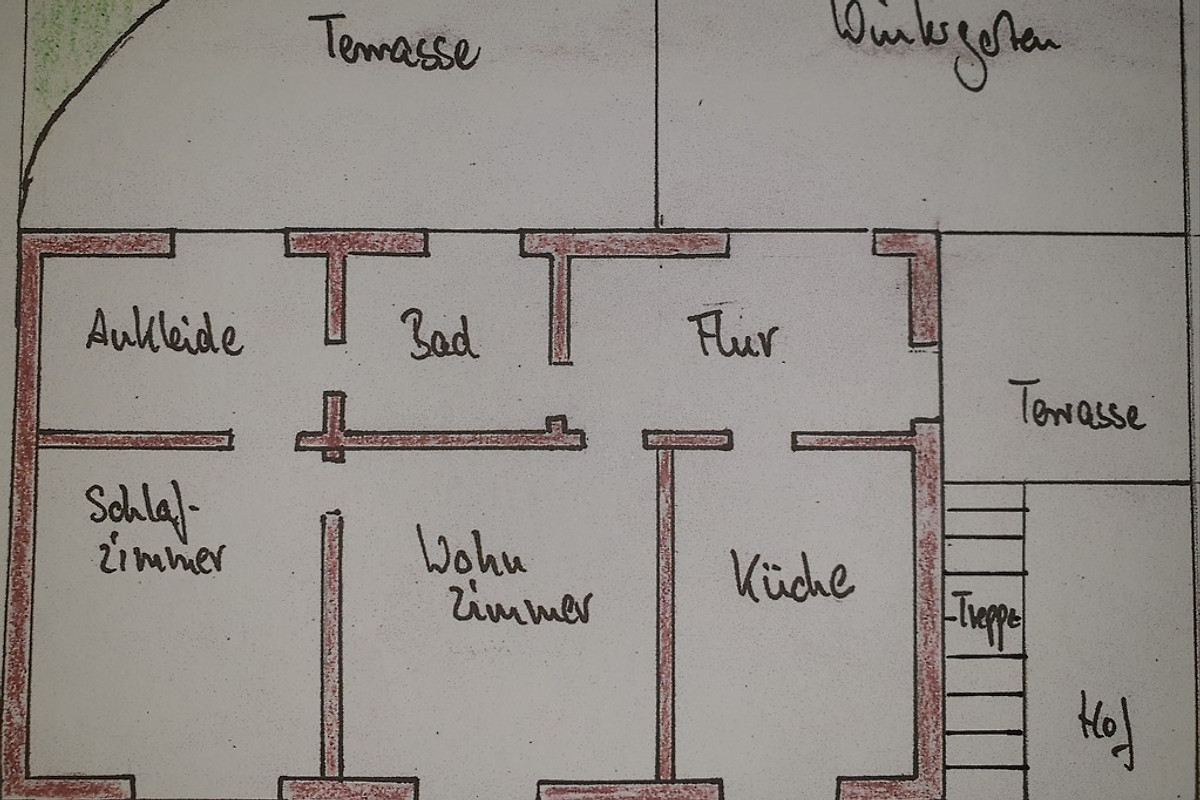 Terrasse
Wintergarten
Ankleide
Bad
Flur
Terrasse
Schlaf-
zimmer
Wohn
zimmer
Küche
Treppe
Hof